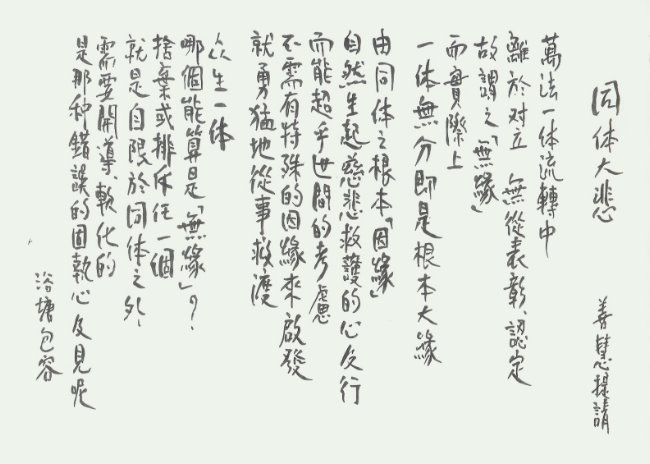 同体大悲
善慧提請
萬法一体流轉中
離於对立 無從表彰、認定
故謂之「無緣」
而實際上
一体無分即是根本大緣
由同体之根本「因緣」
自然生起慈悲救護的心及行
而能超乎世間的考慮
不需有特殊的因緣來啟發
就勇猛地從事救渡
众生一体
哪個能算是「無緣」？
捨棄或排斥任一個
就是自限於同体之外，
需要開導、軟化的
是那种錯誤的固執心及見呢
浴塘包容